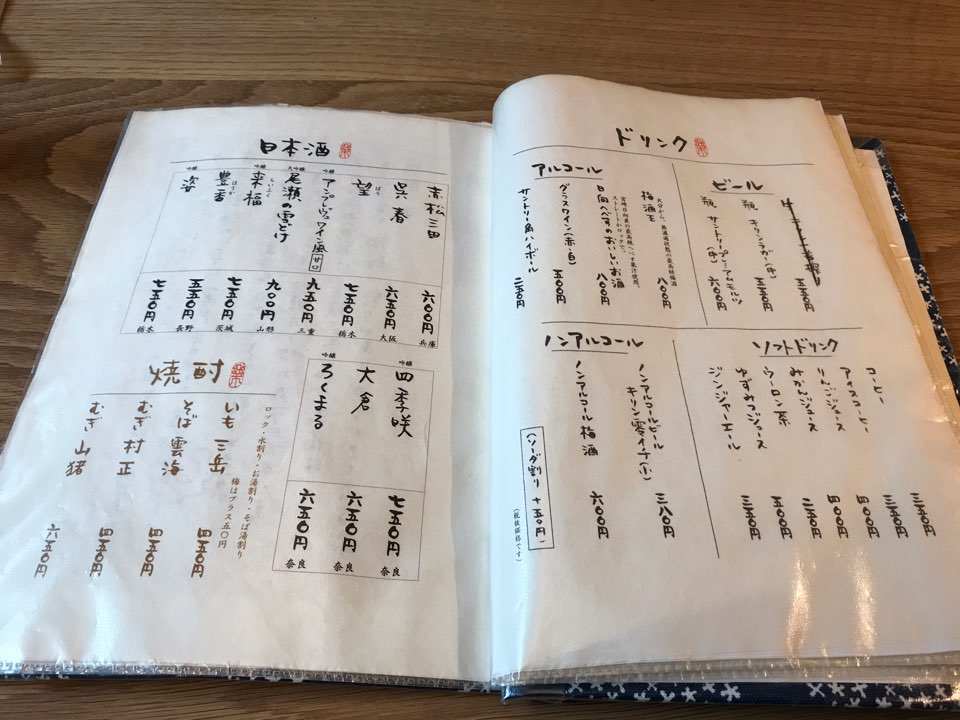 ドリンク
ビール
五五〇円
瓶 キリンラガー(中) 五五〇円
瓶 サントリープレミアムモルツ(中) 六〇〇円
アルコール
大分から、無濾過状態の最高級梅酒
梅酒王 八〇〇円
宮崎日向産の最高級へべす果汁使用。
ストレートかロックで。
日向へべすのおいしいお酒 八〇〇円
グラスワイン(赤・白) 五〇〇円
サントリー角ハイボール
ソフトドリンク
コーヒー 三五〇円
アイスコーヒー 三五〇円
りんごジュース 四〇〇円
みかんジュース 四〇〇円
ウーロン茶 二五〇円
ゆずみつジュース 四〇〇円
ジンジャーエール 三五〇円
ノンアルコール
ノンアルコールビール
キリン零イチ(小) 三八〇円
ノンアルコール梅酒 六〇〇円
(ソーダ割り +五〇円)
(税抜価格です)
日本酒
赤松三田 六〇〇円 兵庫
呉春 六五〇円 大阪
望 ぼう 七五〇円 栃木
吟醸 アンプレヴュワイン風 甘口 九五〇円 三重
大吟醸 尾瀬の雪どけ 九〇〇円 山縣
吟醸 来福 らいふく 七五〇円 茨城
豊香 ほうか 五五〇円 長野
吟醸 姿 七五〇円 栃木
吟醸 四季咲 七五〇円 奈良
大倉 六五〇円 奈良
吟醸 ろくまる 六五〇円 奈良
焼酎
ロック・水割り・お湯割り・そば湯割り
梅はプラス五〇円
いも 三岳 四五〇円
そば 雲海 四五〇円
むぎ 村正 四五〇円
むぎ 山猪 六五〇円